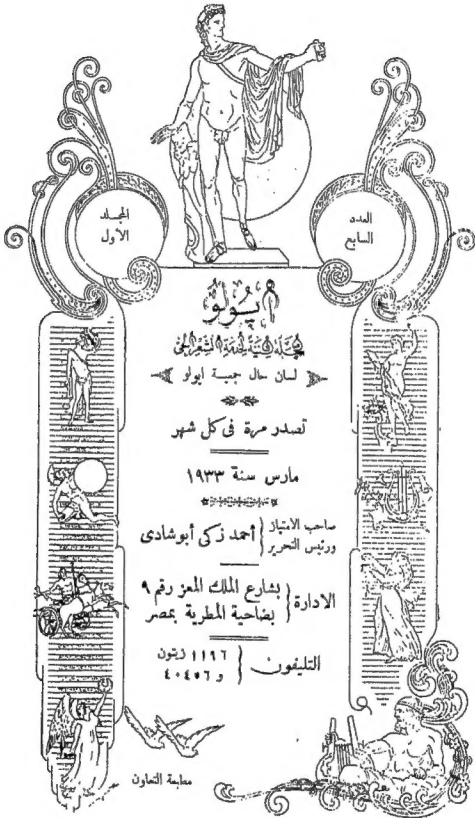 العدد
السابع
المجلد
الأول
أپولو
مجلة فنية لخدمة الشعر الحي
لسان حال جمعية ابولو
تصدر مرة في كل شهر
مارس سنة ١٩٣٣
صاحب الامتياز
ورئيس التحرير
أحمد زكى أبوشادى
الادارة
بشارع الملك المعز رقم ٩
بضاحية المطرية بمصر
التليفون
١١٩٦ زيتون
و ٤٠٤٥٦
مطبعة التعاون